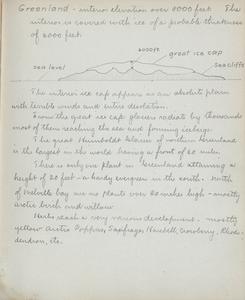 Greenland - interior elevation over 8000 feet. The
interior is covered with ice of a probable thickness
of 2000 feet.
8000 ft
great ice cap
sea level
Sea Cliffs
The interior ice cap appears as an absolute plain
with terrible winds and entire desolation.
From the great ice cap glaciers radiate by thousands
most of them reaching the sea and forming icebergs.
The great Humboldt Glacier of northern Greenland
is the largest in the world having a front of 60 miles.
There is only one plant in Greenland attaining a
height of 20 feet - a hardy evergreen in the south. North
of Melville bay are no plants over 20 inches high - mostly
arctic birch and willow.
Herbs reach a very various development. mostly
yellow Arctic Poppies, Saxifrage, Harebell, Crowberry, Rhodo-
dendron, etc.